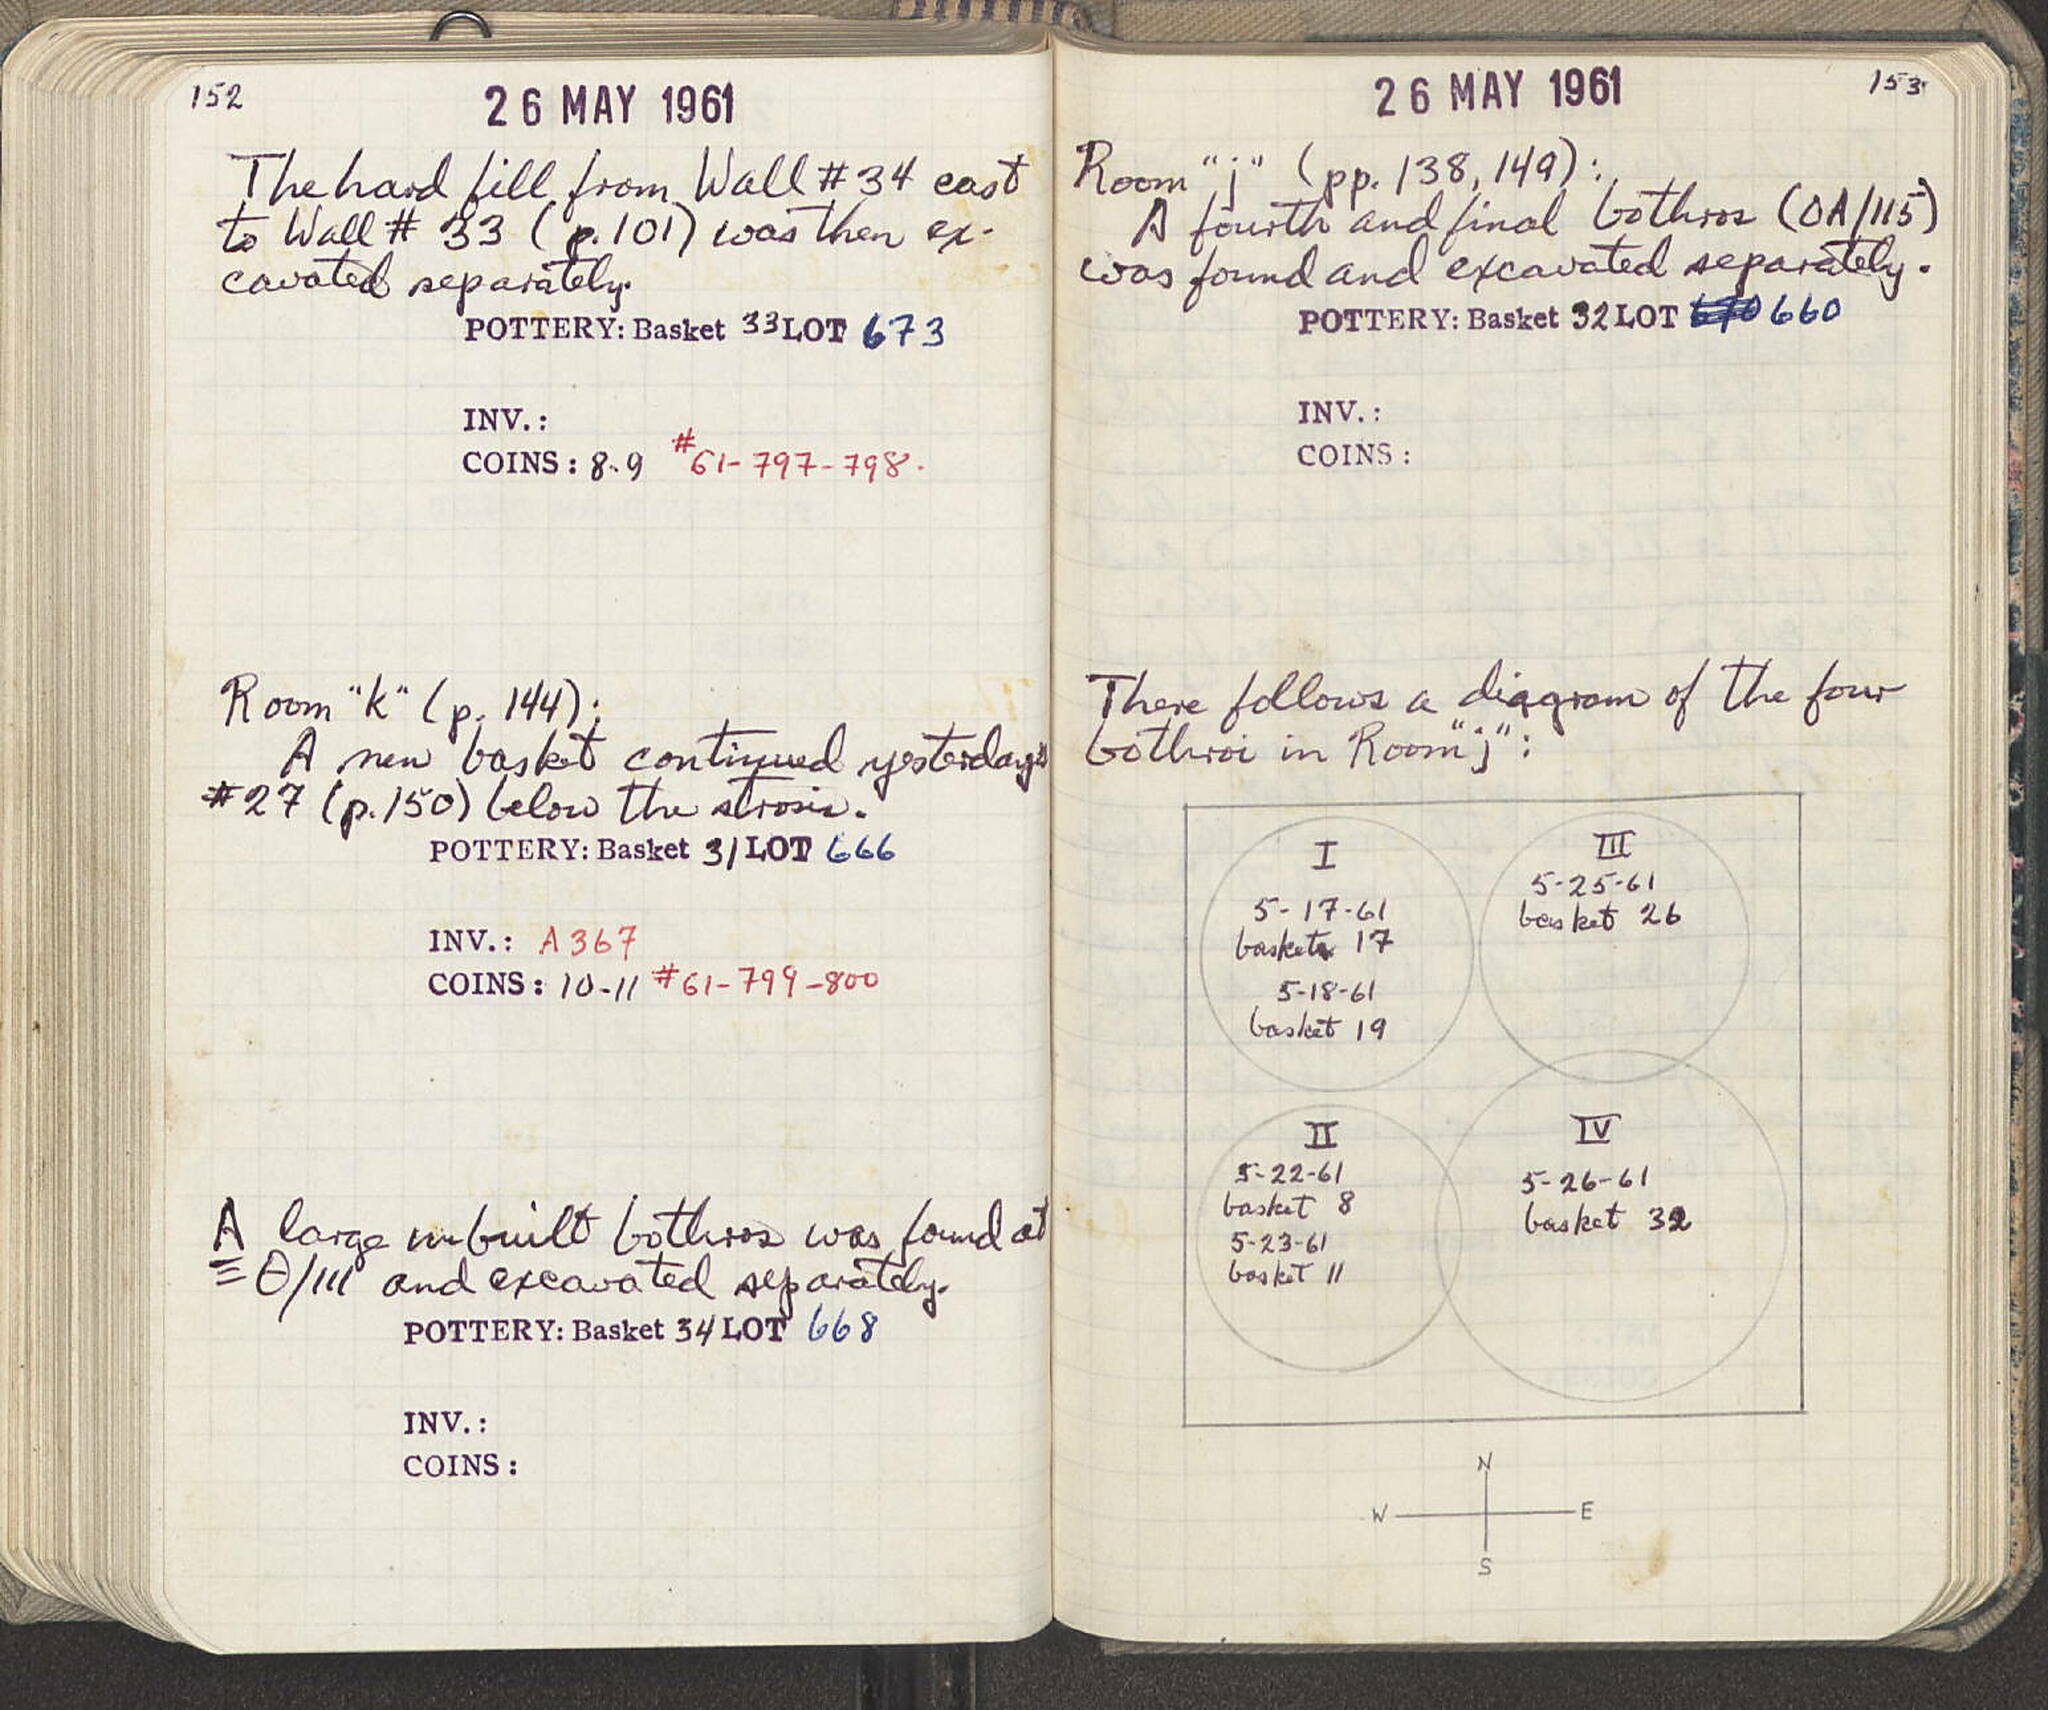 152
26 MAY 1961
The hard fill from Wall # 34 east
to Wall # 33 (p. 101) was then ex-
cavated separately.
POTTERY: Basket 33 LOT 673
INV.:
COINS: 8-9 #61-797-798.
Room "k" (p. 144):
A new basket continued yesterday's
#27 (p. 150) below the strosis.
POTTERY: Basket 31 LOT 666
INV.: A 367
COINS: 10-11 #61-799-800
A large unbuilt bothros was found at
Θ/111 and excavated separately.
POTTERY: Basket 34 LOT 668
INV.:
COINS:
153
26 MAY 1961
Room "j" (pp. 138, 149):
A fourth and final bothros (OA/115)
was found and excavated separately.
POTTERY: Basket 32 LOT 660
INV.:
COINS:
There follows a diagram of the four
bothroi in Room "j":
I
5-17-61
basket 17
5-18-61
basket 19
III
5-25-61
basket 26
II
5-22-61
basket 8
5-23-61
basket 11
IV
5-26-61
basket 32
N
W E
S